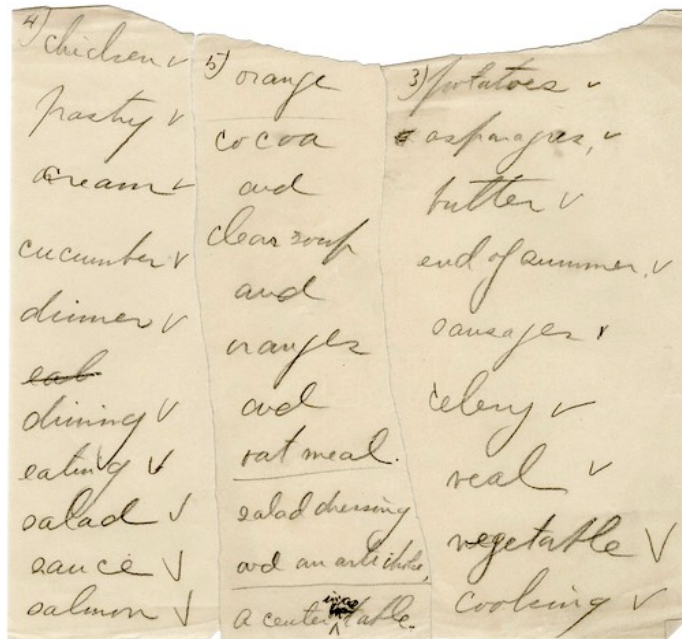 4) chicken ✓
pastry ✓
cream ✓
cucumber ✓
dinner ✓
eat
dining ✓
eating ✓
salad ✓
sauce ✓
salmon ✓
5) orange
cocoa
and
clear soup
and
oranges
and
oatmeal.
salad dressing
and an artichoke,
a center in a table.
3) potatoes ✓
asparagus, ✓
butter ✓
end of summer, ✓
sausages ✓
celery ✓
veal ✓
vegetable ✓
cooking ✓